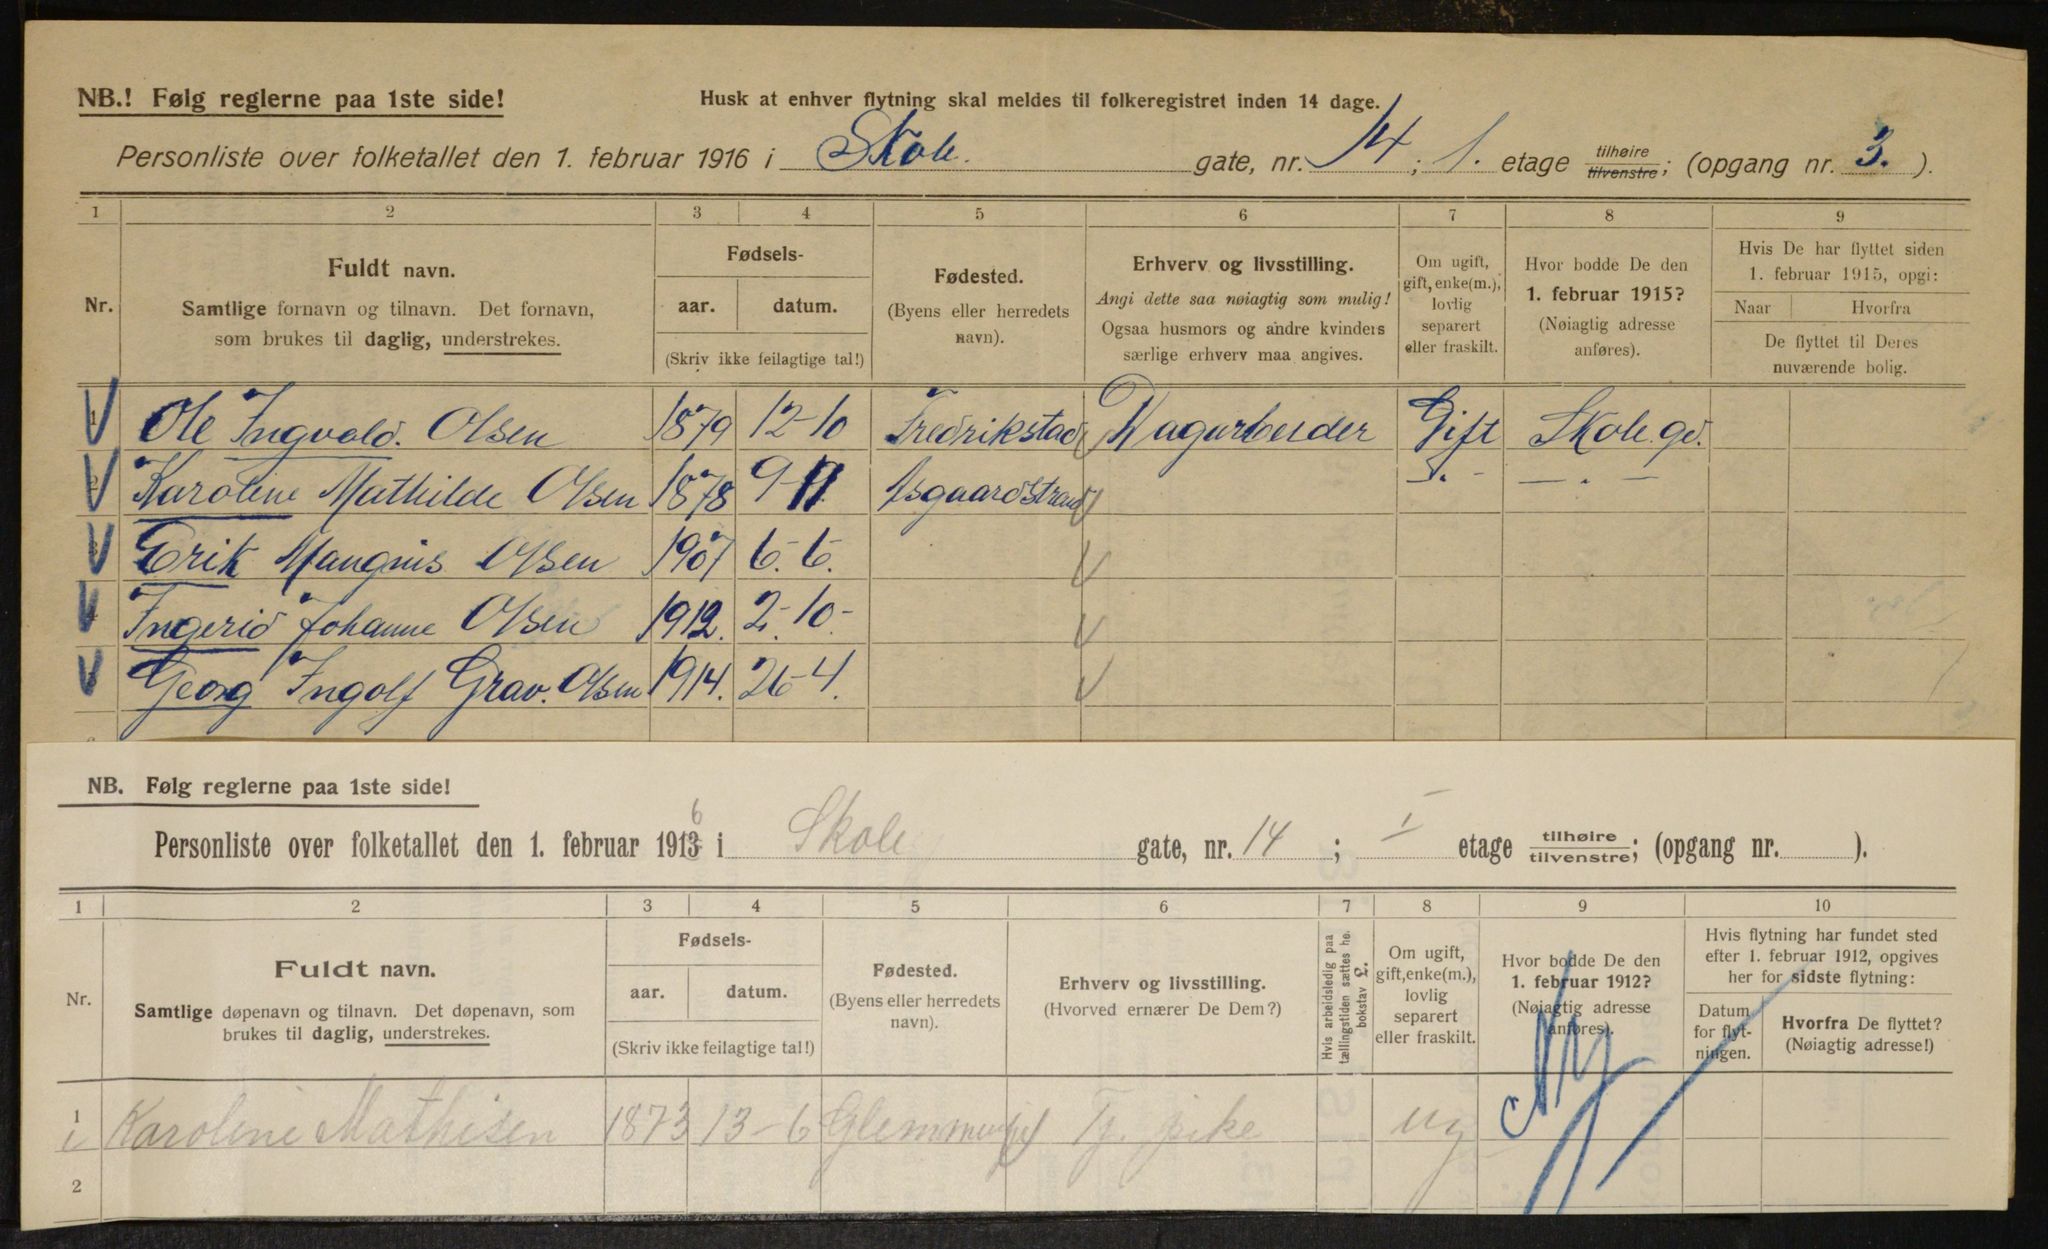 NB.! Følg reglerne paa 1ste side!
Husk at enhver flytning skal meldes til folkeregistret inden 14 dage.
Personliste over folketallet den 1. februar 1916 i Skole gate, nr. 14; 1. etage tilhøire/tilvenstre; (opgang nr. 3.).
1 2 3 4 5 6 7 8 9
Nr.
Fuldt navn.
Samtlige fornavn og tilnavn. Det fornavn,
som brukes til daglig, understrekes.
Fødsels-
aar. datum.
(Skriv ikke feilagtige tal!)
Fødested.
(Byens eller herredets
navn).
Erhverv og livsstilling.
Angi dette saa nøiagtig som mulig!
Ogsaa husmors og andre kvinders
særlige erhverv maa angives.
Om ugift,
gift, enke(m.),
lovlig
separert
eller fraskilt.
Hvor bodde De den
1. februar 1915?
(Nøiagtig adresse
anføres).
Hvis De har flyttet siden
1. februar 1915, opgi:
Naar Hvorfra
De flyttet til Deres
nuværende bolig.
1 Ole Ingvald. Olsen 1879 12-10 Fredrikstad Dagarbeider Gift Skole.gd.
2 Karoline Mathilde Olsen 1878 9-11 Asgaardstrand -"- -"-
3 Erik Mangnus Olsen 1907 6.-6.
4 Ingerid Johanne Olsen 1912. 2.-10-
5 Georg Ingolf Grav. Olsen 1914. 26-4.
NB. Følg reglerne paa 1ste side!
Personliste over folketallet den 1. februar 1913 6 i Skole gate, nr. 14; I etage tilhøire/tilvenstre; (opgang nr. ).
1 2 3 4 5 6 7 8 9 10
Nr.
Fuldt navn.
Samtlige døpenavn og tilnavn. Det døpenavn, som
brukes til daglig, understrekes.
Fødsels-
aar. datum.
(Skriv ikke feilagtige tal!)
Fødested.
(Byens eller herredets
navn).
Erhverv og livsstilling.
(Hvorved ernærer De Dem?)
Hvis arbeidsledig paa
tællingstiden sættes he.
bokstav L.
Om ugift,
gift, enke(m.),
lovlig
separert
eller fraskilt.
Hvor bodde De den
1. februar 1912?
(Nøiagtig adresse
anføres).
Hvis flytning har fundet sted
efter 1. februar 1912, opgives
her for sidste flytning:
Datum
for flyt-
ningen.
Hvorfra De flyttet?
(Nøiagtig adresse!)
1 Karoline Mathisen 1873 13-6 Glemminge Tj. pike ug Ny
2